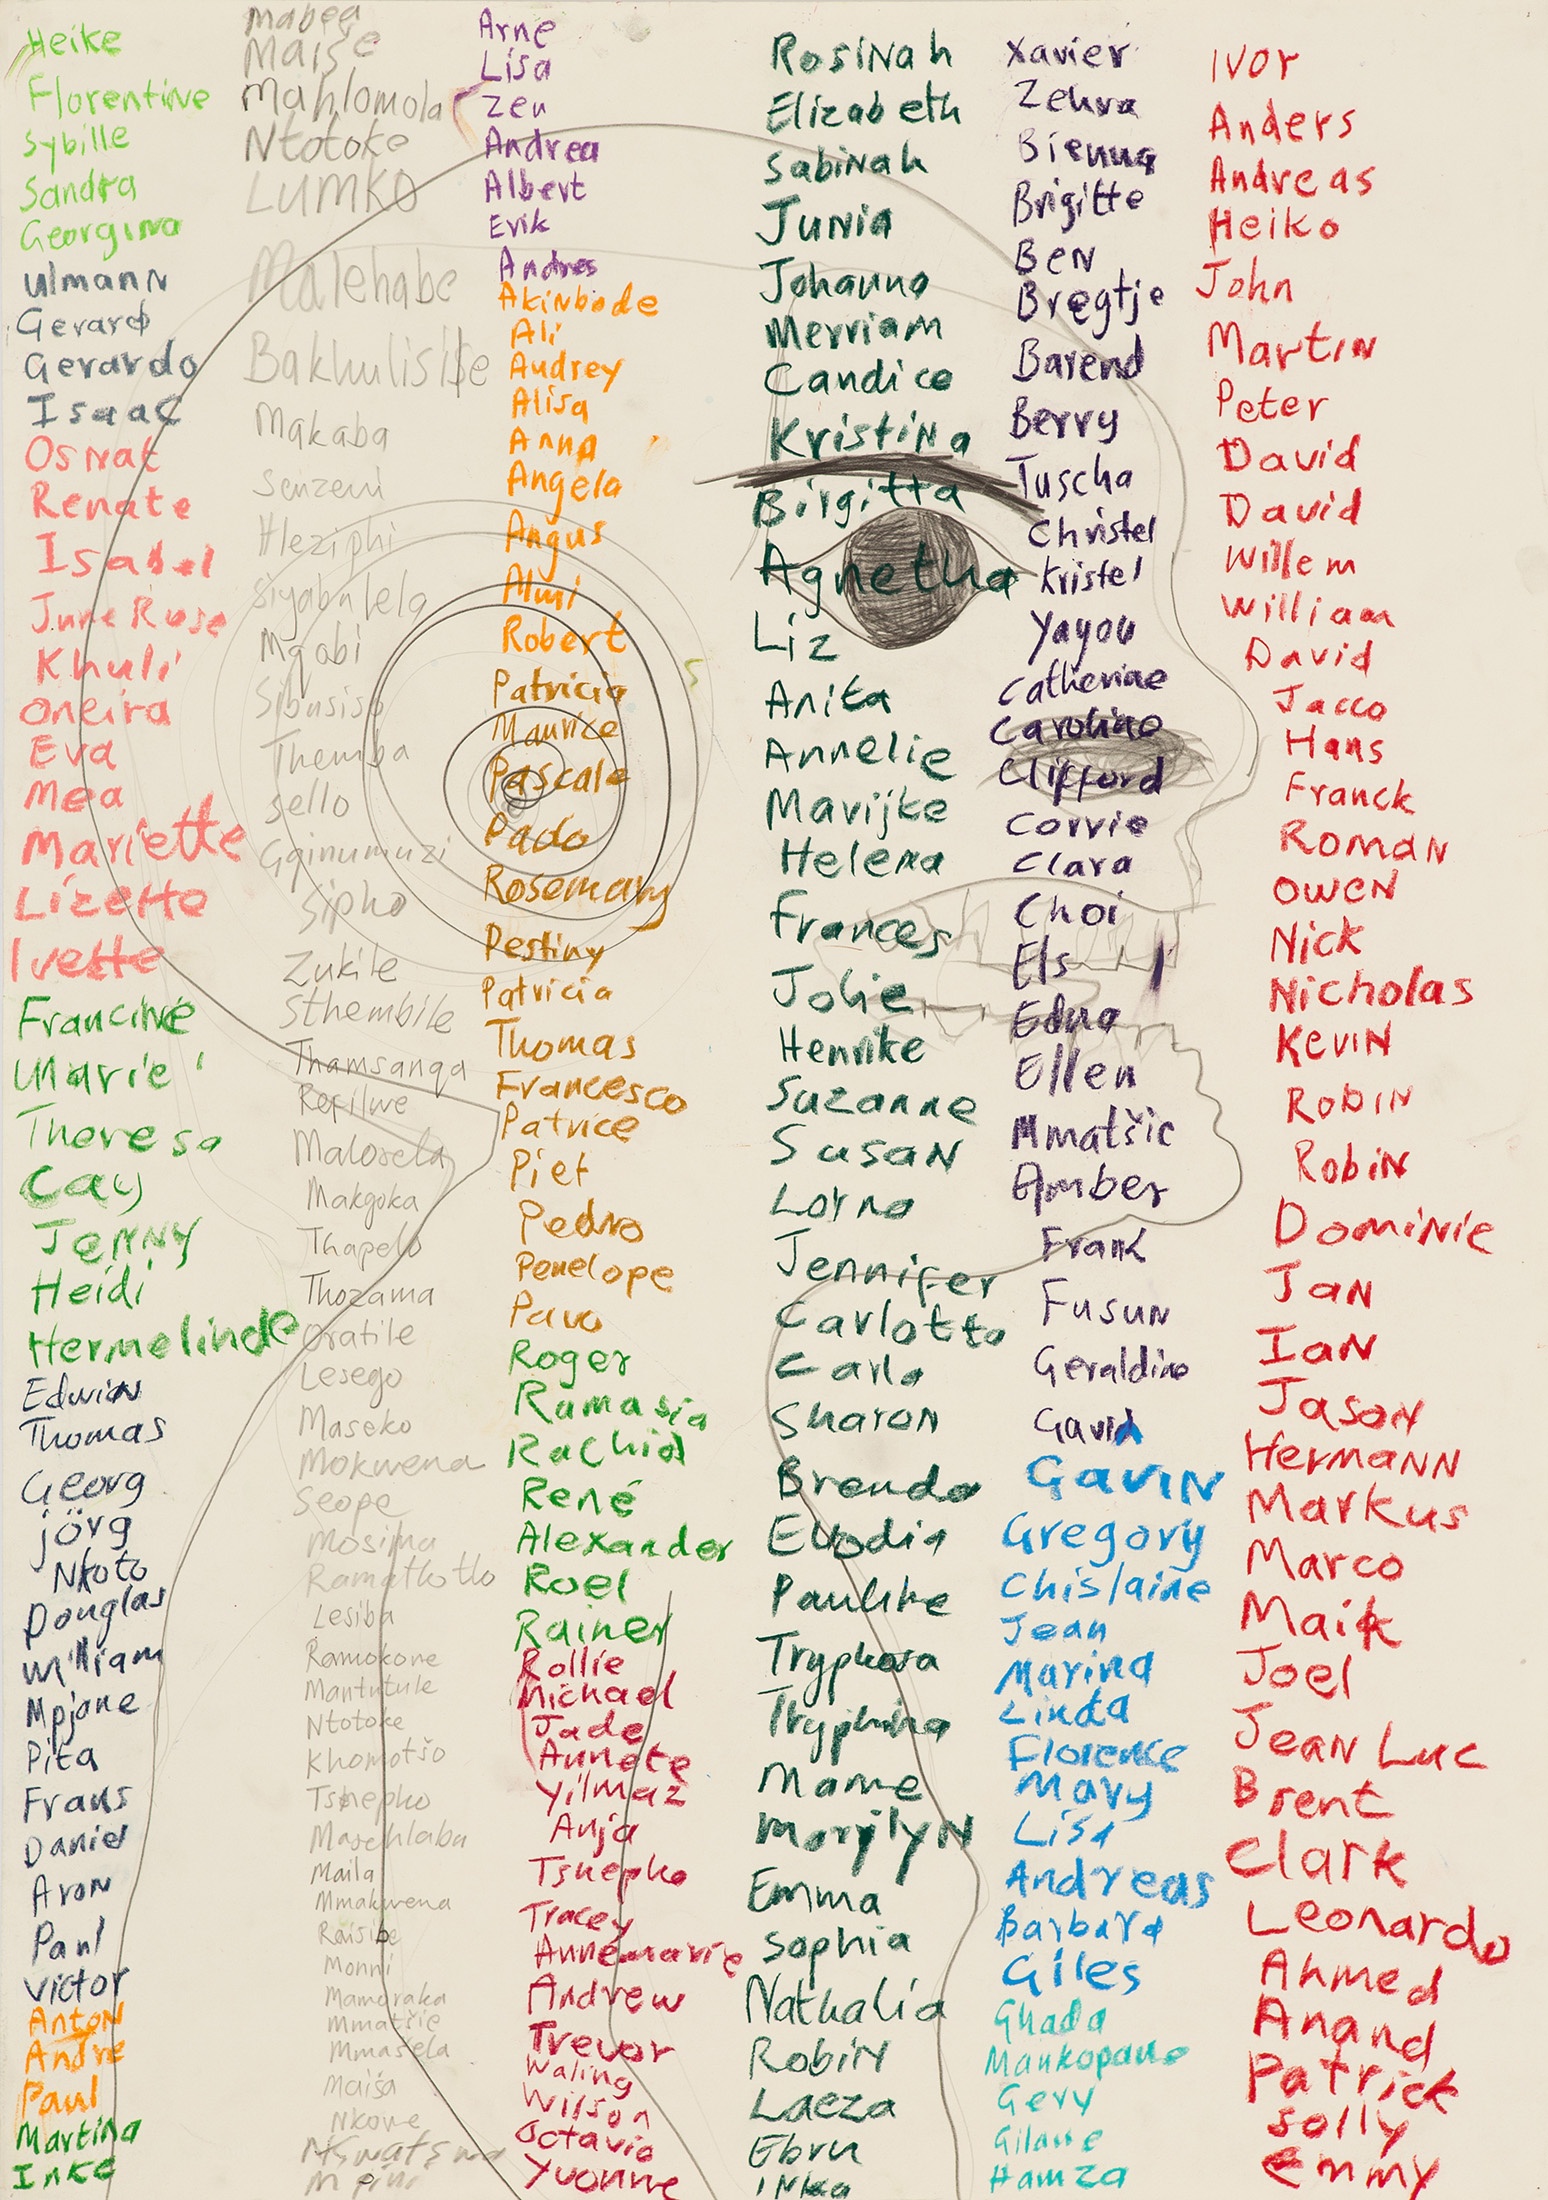 Heike
Florentine
Sybille
Sandra
Georgina
Ulmann
Gerard
Gerardo
Isaac
Osnat
Renate
Isabel
June Rose
Khuli
Oneira
Eva
Mea
Mariette
Lizette
Ivette
Francine
Marie
Theresa
Cay
Jenny
Heidi
Hermelinde
Edwin
Thomas
Georg
jörg
Nkoto
Douglas
William
Mpjane
Pita
Frans
Daniel
Aron
Paul
Victor
Anton
Andre
Paul
Martina
Inke
Mabea
Maise
Mahlomola
Ntotoke
Lumko
Malehabe
Makaba
Senzeni
Hleziphi
Siyabulela
Mqabi
Sibusiso
Themba
Sello
Gqinumuzi
Sipho
Zukile
Sthembile
Thamsanqa
Refilwe
Malosela
Makgoka
Thapelo
Thozama
Oratile
Lesego
Maseko
Mokwena
Seope
Mosima
Ramatlotlo
Lesiba
Ramokone
Mantutule
Ntotoke
Khomotšo
Tshepho
Masehlaba
Maila
Mmakwena
Raisibe
Monni
Mamoraka
Mmatšie
Mmasela
Maiša
Nkove
Arne
Lisa
Zen
Andrea
Albert
Erik
Andres
Akinbode
Ali
Audrey
Alisa
Anna
Angela
Angus
Robert
Patricia
Maurice
Pascale
Pado
Rosemary
Destiny
Patricia
Thomas
Francesco
Patrice
Piet
Pedro
Penelope
Pavo
Roger
Ramasia
Rachid
René
Alexander
Roel
Rainer
Rollie
Michael
Jade
Annete
Yilmaz
Anja
Tshepho
Tracey
Annemarie
Andrew
Trevor
Waling
Wilson
Octavio
Yvonne
Rosinah
Elizabeth
Sabinah
Junia
Johanna
Merriam
Candice
Kristina
Birgitta
Agnetha
Liz
Anita
Annelie
Marijke
Helena
Frances
Jolie
Henrike
Suzanne
Susan
Lorna
Jennifer
Carlotta
Carla
Sharon
Brenda
Evodia
Pauline
Tryphosa
Tryphina
Mame
Marilyn
Emma
Sophia
Nathalia
Robin
Laeza
Ebru
Inka
Xavier
Zehra
Bienna
Brigitte
Ben
Bregtje
Barend
Berry
Tuscha
Christel
Kristel
Yayou
Catherine
Caroline
Clifford
Corrie
Clara
Choi
Els
Edna
Ellen
Mmatšie
Amber
Frank
Fusun
Geraldine
Gavin
Gregory
Ghislaine
Jean
Marina
Linda
Florence
Mary
Lisa
Andreas
Barbara
Giles
Ghada
Mankopane
Gery
Gilane
Hamza
Ivor
Anders
Andreas
Heiko
John
Martin
Peter
David
David
Willem
William
David
Jacco
Hans
Franck
Roman
Owen
Nick
Nicholas
Kevin
Robin
Robin
Dominic
Jan
Ian
Jason
Hermann
Markus
Marco
Maik
Joel
Jean Luc
Brent
Clark
Leonardo
Ahmed
Anand
Patrick
Solly
Emmy